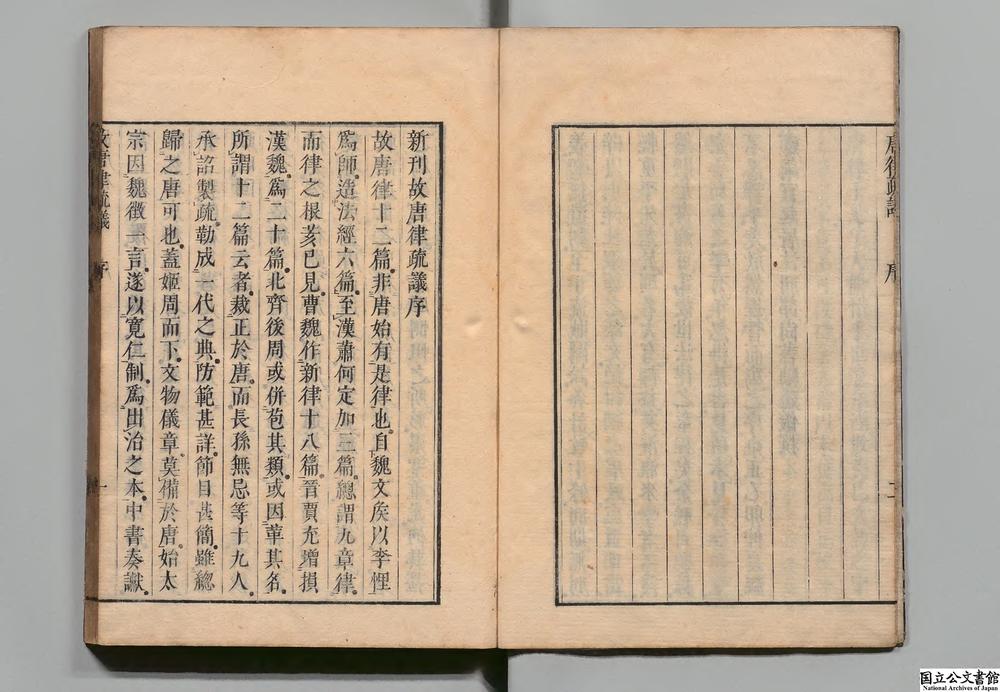 唐律疏議 序 二
新刊故唐律疏議序
故唐律十二篇非唐始有是律也自魏文侯以李悝
爲師造法經六篇至漢蕭何定加三篇總謂九章律
而律之根荄已見曹魏作新律十八篇晉賈充增損
漢魏爲二十篇北齊後周或併苞其類或因革其名
所謂十二篇云者裁正於唐而長孫無忌等十九人
承詔製疏勒成一代之典防範甚詳節目甚簡雖總
歸之唐可也蓋姬周而下文物儀章莫備於唐始太
宗因魏徵一言遂以寬仁制爲出治之本中書奏讞
故唐律疏議 序 一
国立公文書館
National Archives of Japan